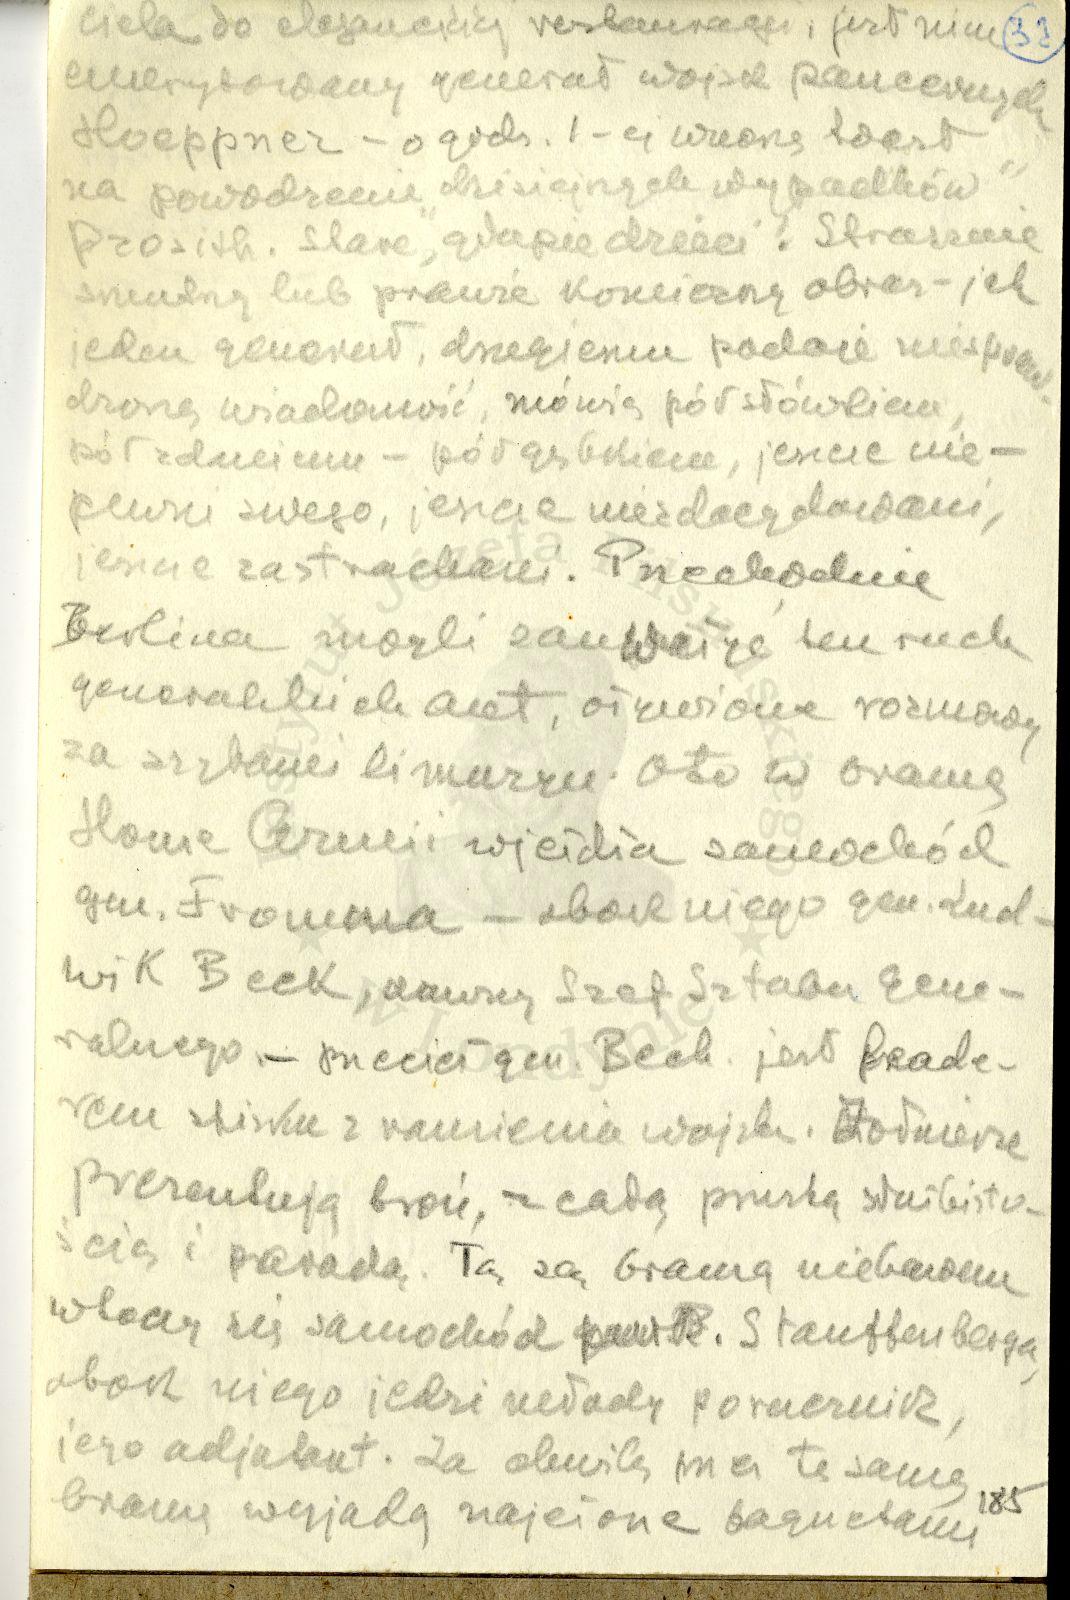 ciela do eleganckiej restauracji, jest nim 32
emerytowany generał wojsk pancernych
Hoeppner – o godz. 1-ej wnoszą toast
na powodzenie „dzisiejszych wypadków”
Prosith. Stare „głupie dzieci”! Strasznie
smutny lub prawie komiczny obraz – jak
jeden generał, drugiemu podaje niespraw-
dzoną wiadomość, mówią półsłówkiem,
półzdaniem – półgębkiem, jeszcze nie-
pewni swego, jeszcze niezdecydowani,
jeszcze zastrachani. Przechodnie
Berlina mogli zauważyć ten ruch
generalskich aut, ożywione rozmowy
za szybami limuzyn. Oto w bramę
Home Armii wjeżdża samochód
gen. Fromma – obok niego gen. Lud-
wik Beck, dawny Szef Sztabu Gene-
ralnego – przecież gen. Beck jest
z ramienia wojska. Żołnierze
prezentują broń, z całą pruską służbisto-
ścią i paradą. Tą są bramą niebawem
wtoczy się samochód B. Stauffenberga,
obok niego jedzie młody porucznik,
jego adjutant. Za chwilę przez tę samą
bramę wyjadą najeżone bagnetami
185
Instytut Józefa Piłsudskiego
w Londynie